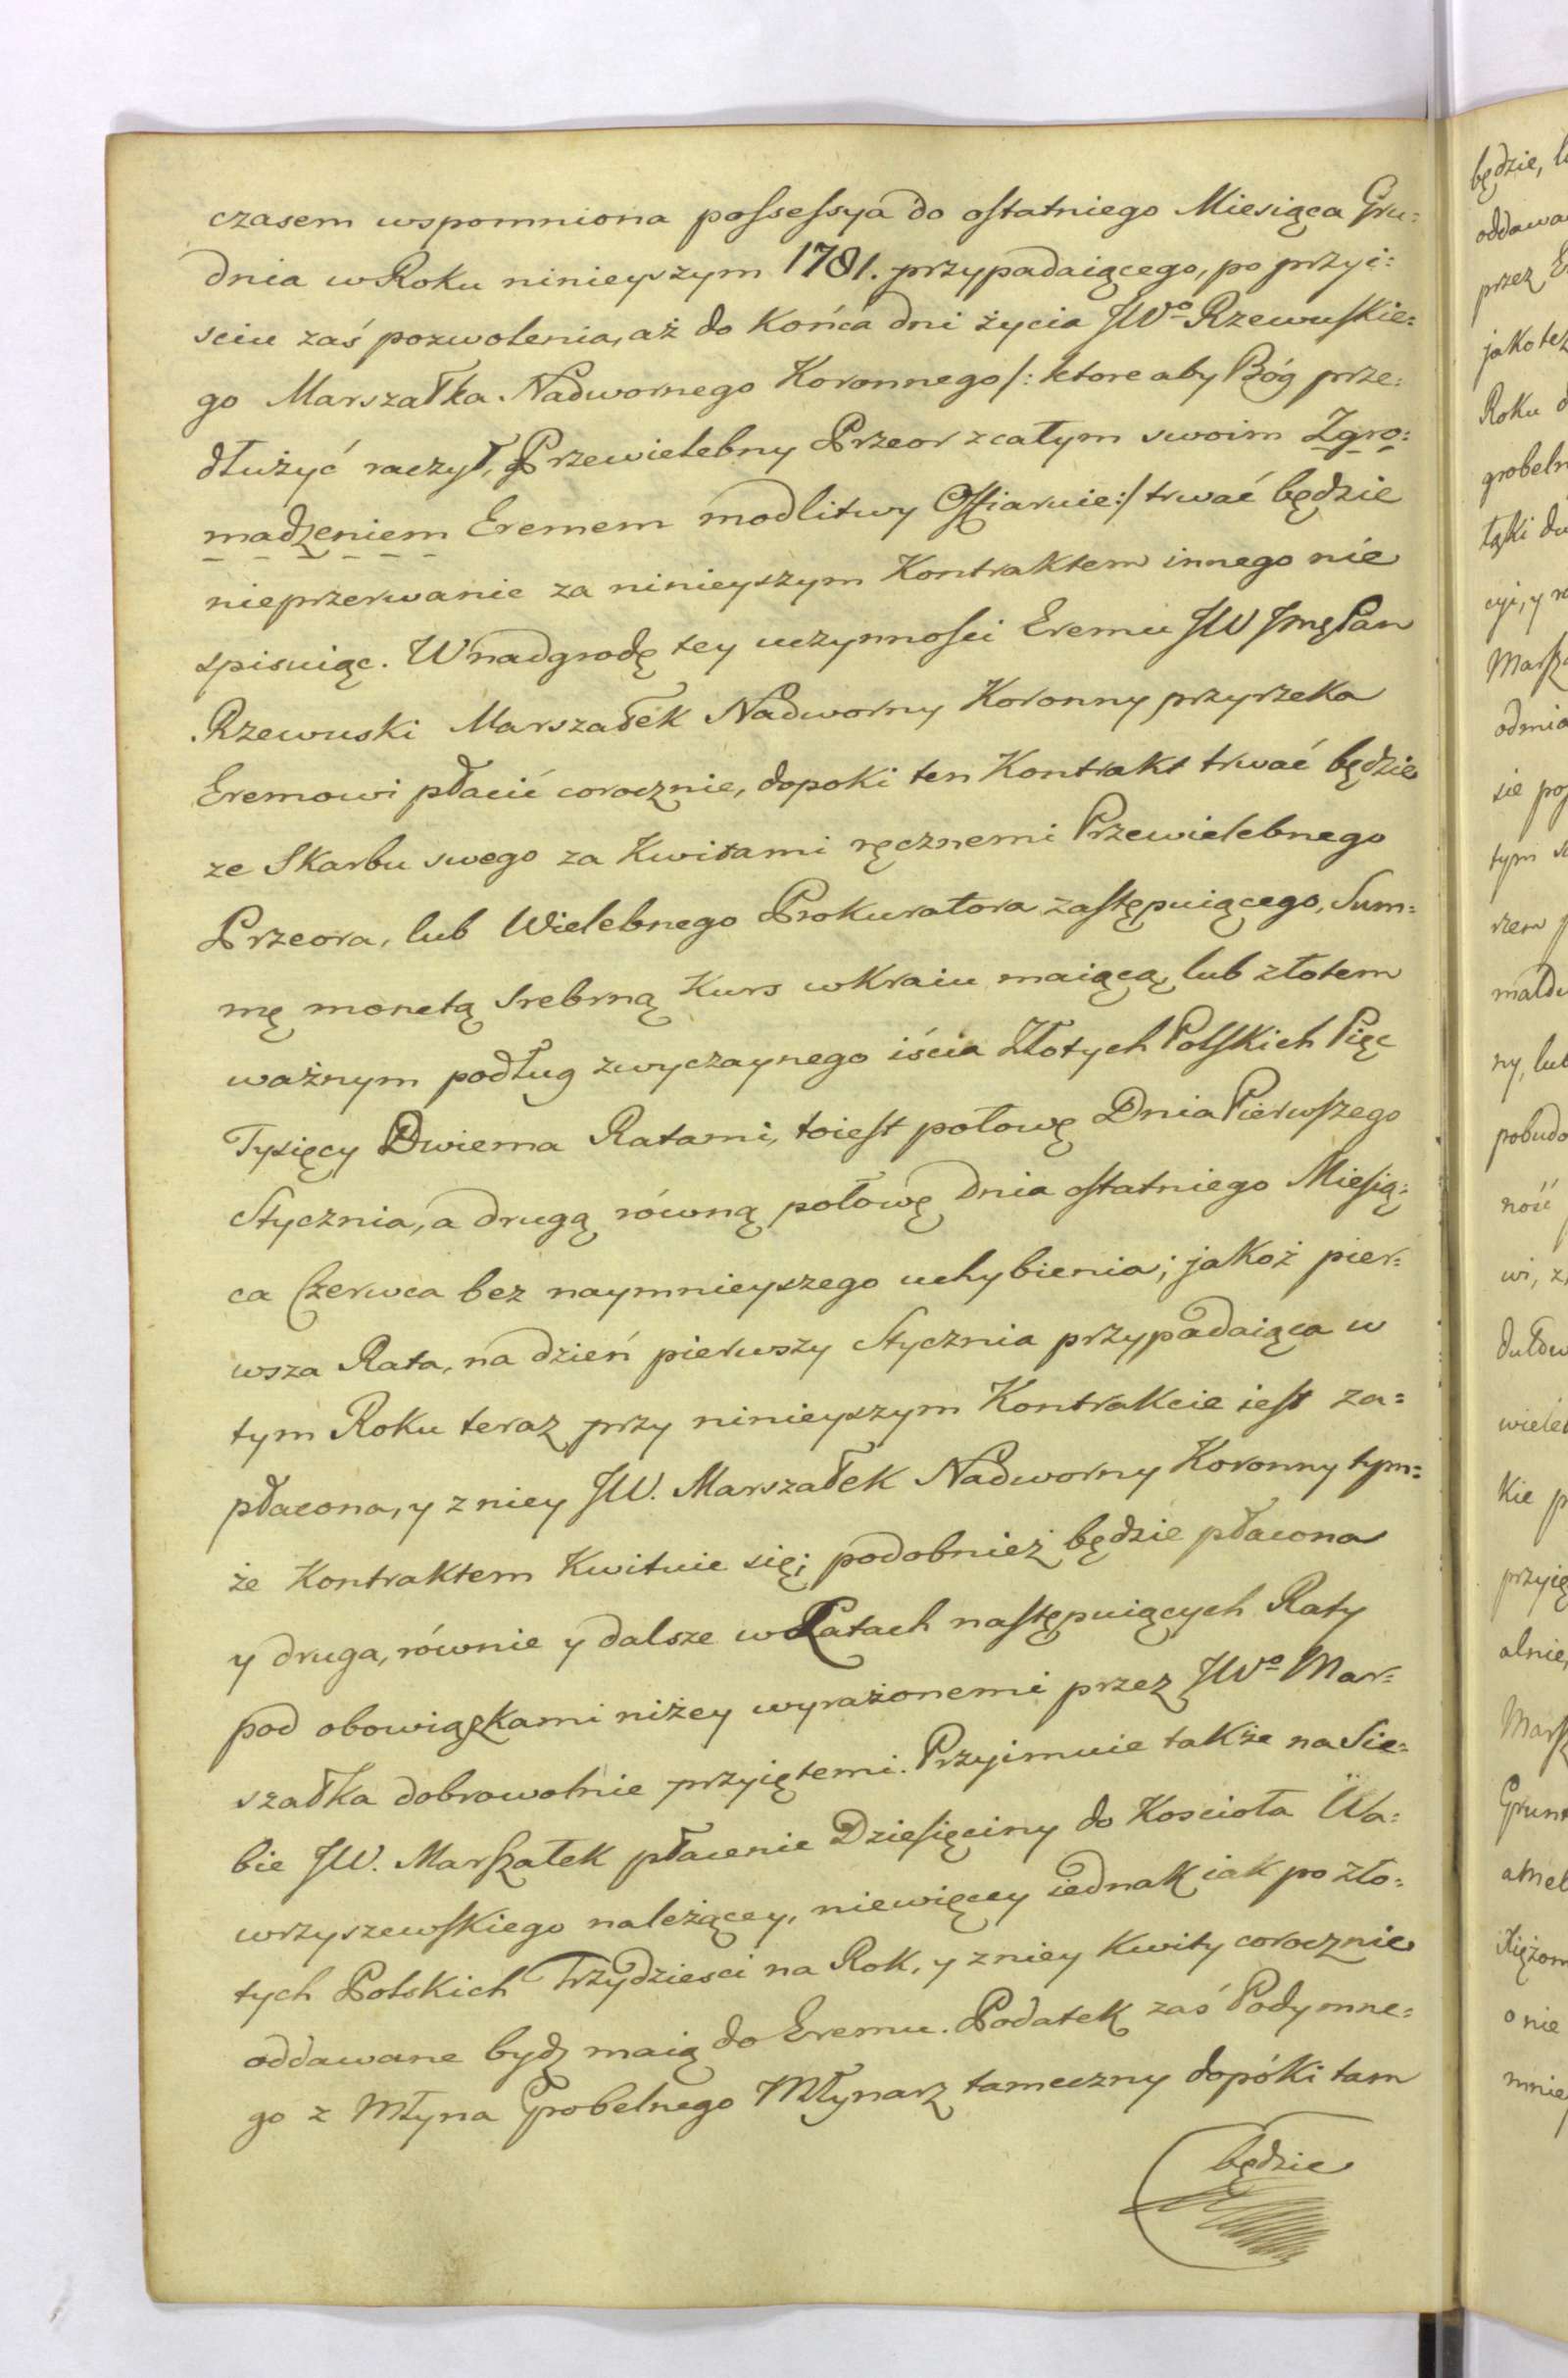 czasem wspomniona possessya do ostatniego Miesiąca Gru:
dnia w Roku ninieyszym 1781. przypadaiącego, po przyi:
sciu zaś pozwolenia, aż do Końca dni życia JWo Rzewuskie:
go Marszałka Nadwornego Koronnego /: ktore aby Bóg prze:
dłużyć raczył, Przewielebny Przeor z całym swoim Zgro:
madzeniem Eremem modlitwy Offiaruie :/ trwać będzie
nieprzerwanie za ninieyszym Kontraktem innego nie
spisuiąc. W nadgrodę tey uczynnosci Eremu JW Jmę Pan
Rzewuski Marszałek Nadworny Koronny przyrzeka
Eremowi płacić corocznie, dopoki ten Kontrakt trwać będzie
ze Skarbu swego za Kwitami ręcznemi Przewielebnego
Przeora, lub Wielebnego Prokuratora zastępuiącego, Sum:
mę monetą Srebrną Kurs w Kraiu maiącą, lub złotem
ważnym podług zwyczaynego iścia Złotych Polskich Pięc
Tysięcy Dwiema Ratami, toiest połowę Dnia Pierwszego
Stycznia, a drugą równą połowę Dnia ostatniego Miesią:
ca Czerwca bez naymnieyszego uchybienia; jakoż pier:
wsza Rata, na dzień pierwszy Stycznia przypadaiąca w
tym Roku teraz przy ninieyszym Kontrakcie iest za:
płacona, y z niey JW. Marszałek Nadworny Koronny tym:
że Kontraktem Kwituie się; podobnież będzie płacona
y druga, równie y dalsze w Latach następuiących Raty
pod obowiązkami niżey wyrażonemi przez JWo Mar:
szałka dobrowolnie przyiętemi. Przyimuie także na Sie:
bie JW. Marszałek płacenie Dziesięciny do Koscioła Wa:
wrzyszewskiego należącey, niewięcey iednak iak po zło:
tych Polskich Trzydziesci na Rok, y z niey Kwity corocznie
oddawane bydz maią do Eremu. Podatek zaś Podymne:
go z Młyna Grobelnego Młynarz tameczny dopóki tam
będzie
będzie,
oddawa
przez
jako też
Roku
grobeln
łąki
cyi, y
Marsz
odmia
sie
tym
ny, lub
ność
wi, z
wieleb
kie p
alnie,
Marsz
Grunt
o nie
mniey